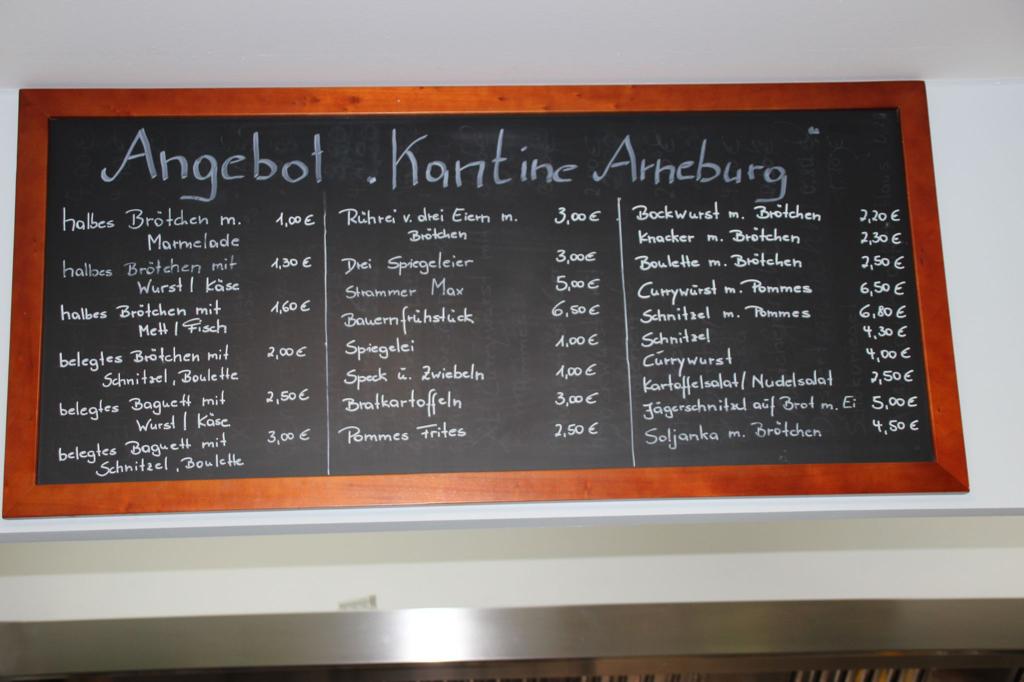 Angebot . Kantine Arneburg
halbes Brötchen m. 1,00 €
Marmelade
halbes Brötchen mit 1,30 €
Wurst / Käse
halbes Brötchen mit 1,60 €
Mett / Fisch
belegtes Brötchen mit 2,00 €
Schnitzel, Boulette
belegtes Baguett mit 2,50 €
Wurst / Käse
belegtes Baguett mit 3,00 €
Schnitzel, Boulette
Rührei v. drei Eiern m. 3,00 €
Brötchen
Drei Spiegeleier 3,00 €
Strammer Max 5,00 €
Bauernfrühstück 6,50 €
Spiegelei 1,00 €
Speck ü. Zwiebeln 1,00 €
Bratkartoffeln 3,00 €
Pommes Frites 2,50 €
Bockwurst m. Brötchen 2,20 €
Knacker m. Brötchen 2,30 €
Boulette m. Brötchen 2,50 €
Currywürst m. Pommes 6,50 €
Schnitzel m. Pommes 6,80 €
Schnitzel 4,30 €
Currywurst 4,00 €
Kartoffelsalat / Nudelsalat 2,50 €
Jägerschnitzel auf Brot m. Ei 5,00 €
Soljanka m. Brötchen 4,50 €